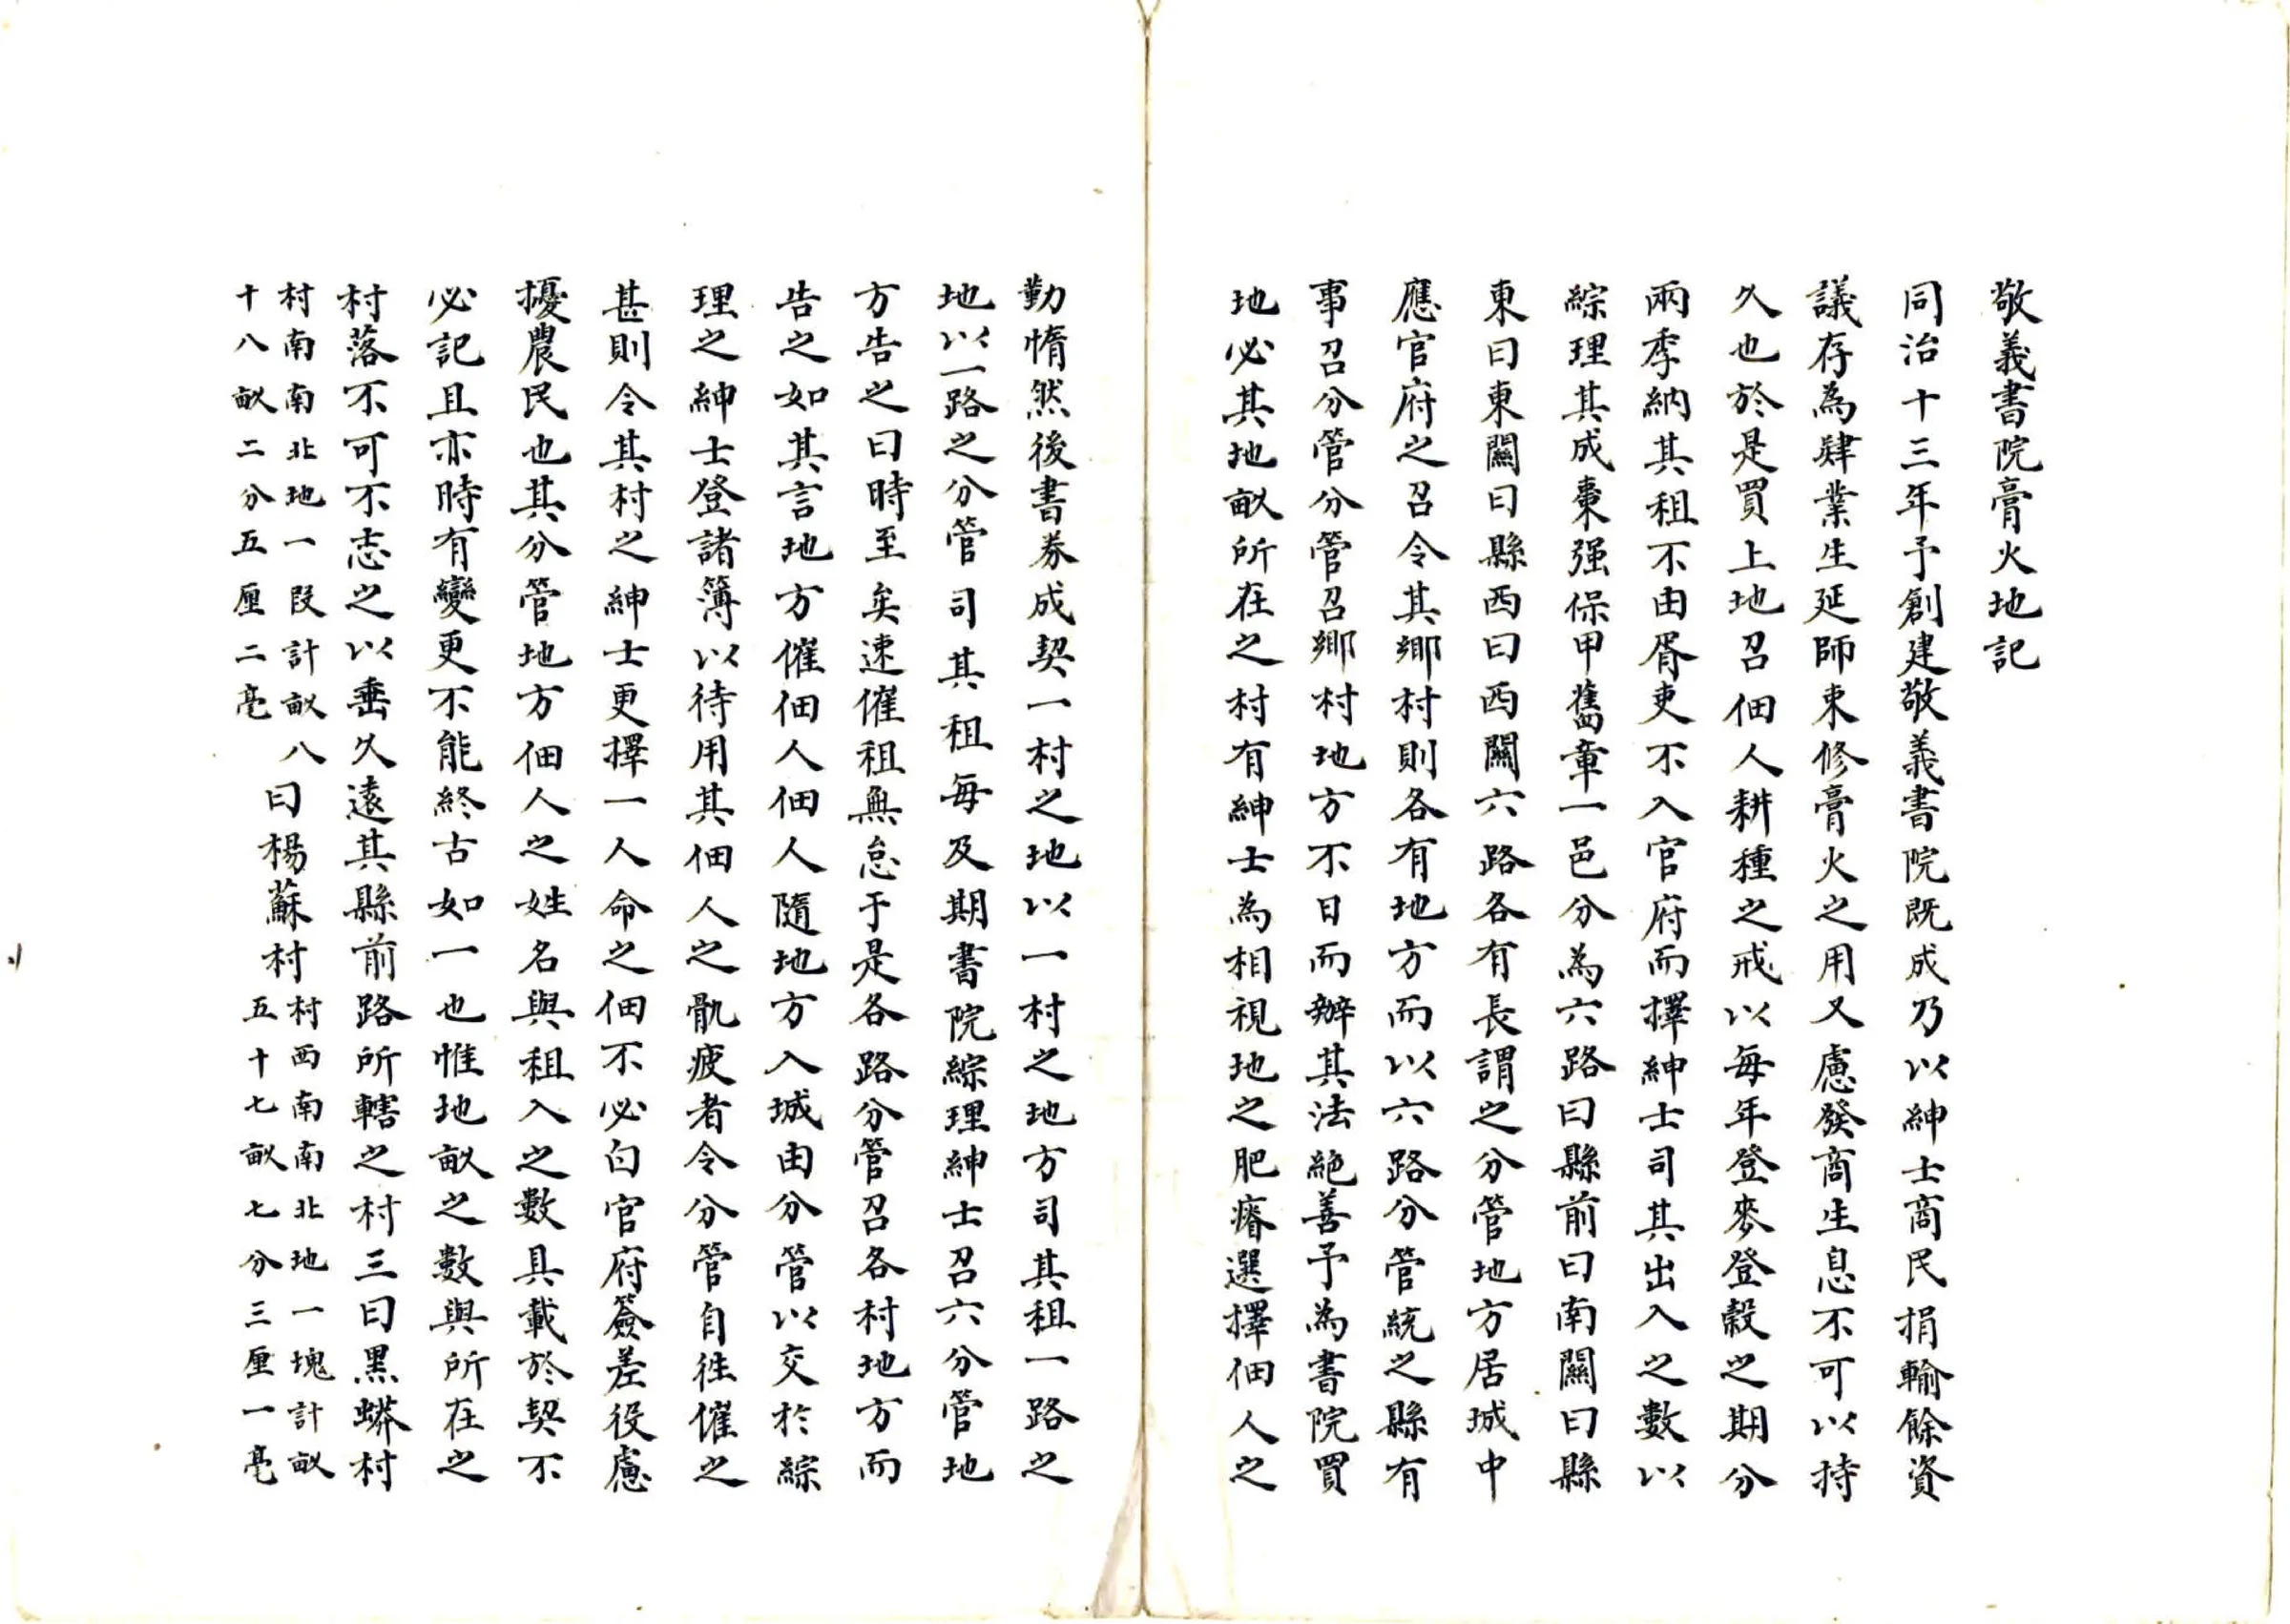 敬義書院膏火地記
同治十三年予創建敬義書院既成乃以紳士商民捐輸餘資
議存為肄業生延師束修膏火之用又慮發商生息不可以持
久也於是買上地召佃人耕種之戒以每年登麥登穀之期分
兩季納其租不由胥吏不入官府而擇紳士司其出入之數以
綜理其成棗强保甲舊章一邑分為六路曰縣前曰南關曰縣
東曰東關曰縣西曰西關六路各有長謂之分管地方居城中
應官府之召令其鄉村則各有地方而以六路分管統之縣有
事召分管分管召鄉村地方不日而辦其法絕善予為書院買
地必其地畝所在之村有紳士為相視地之肥瘠選擇佃人之
勤惰然後書券成契一村之地以一村之地方司其租一路之
地以一路之分管司其租每及期書院綜理紳士召六分管地
方告之曰時至矣速催租無怠于是各路分管召各村地方而
告之如其言地方催佃人佃人隨地方入城由分管以交於綜
理之紳士登諸簿以待用其佃人之骩疲者令分管自往催之
甚則令其村之紳士更擇一人命之佃不必白官府簽差役慮
擾農民也其分管地方佃人之姓名與租入之數具載於契不
必記且亦時有變更不能終古如一也惟地畝之數與所在之
村落不可不志之以垂久遠其縣前路所轄之村三曰黑蟒村
村南南北地一段計畝八
十八畝二分五厘二毫
曰楊蘇村
村西南南北地一塊計畝
五十七畝七分三厘一毫